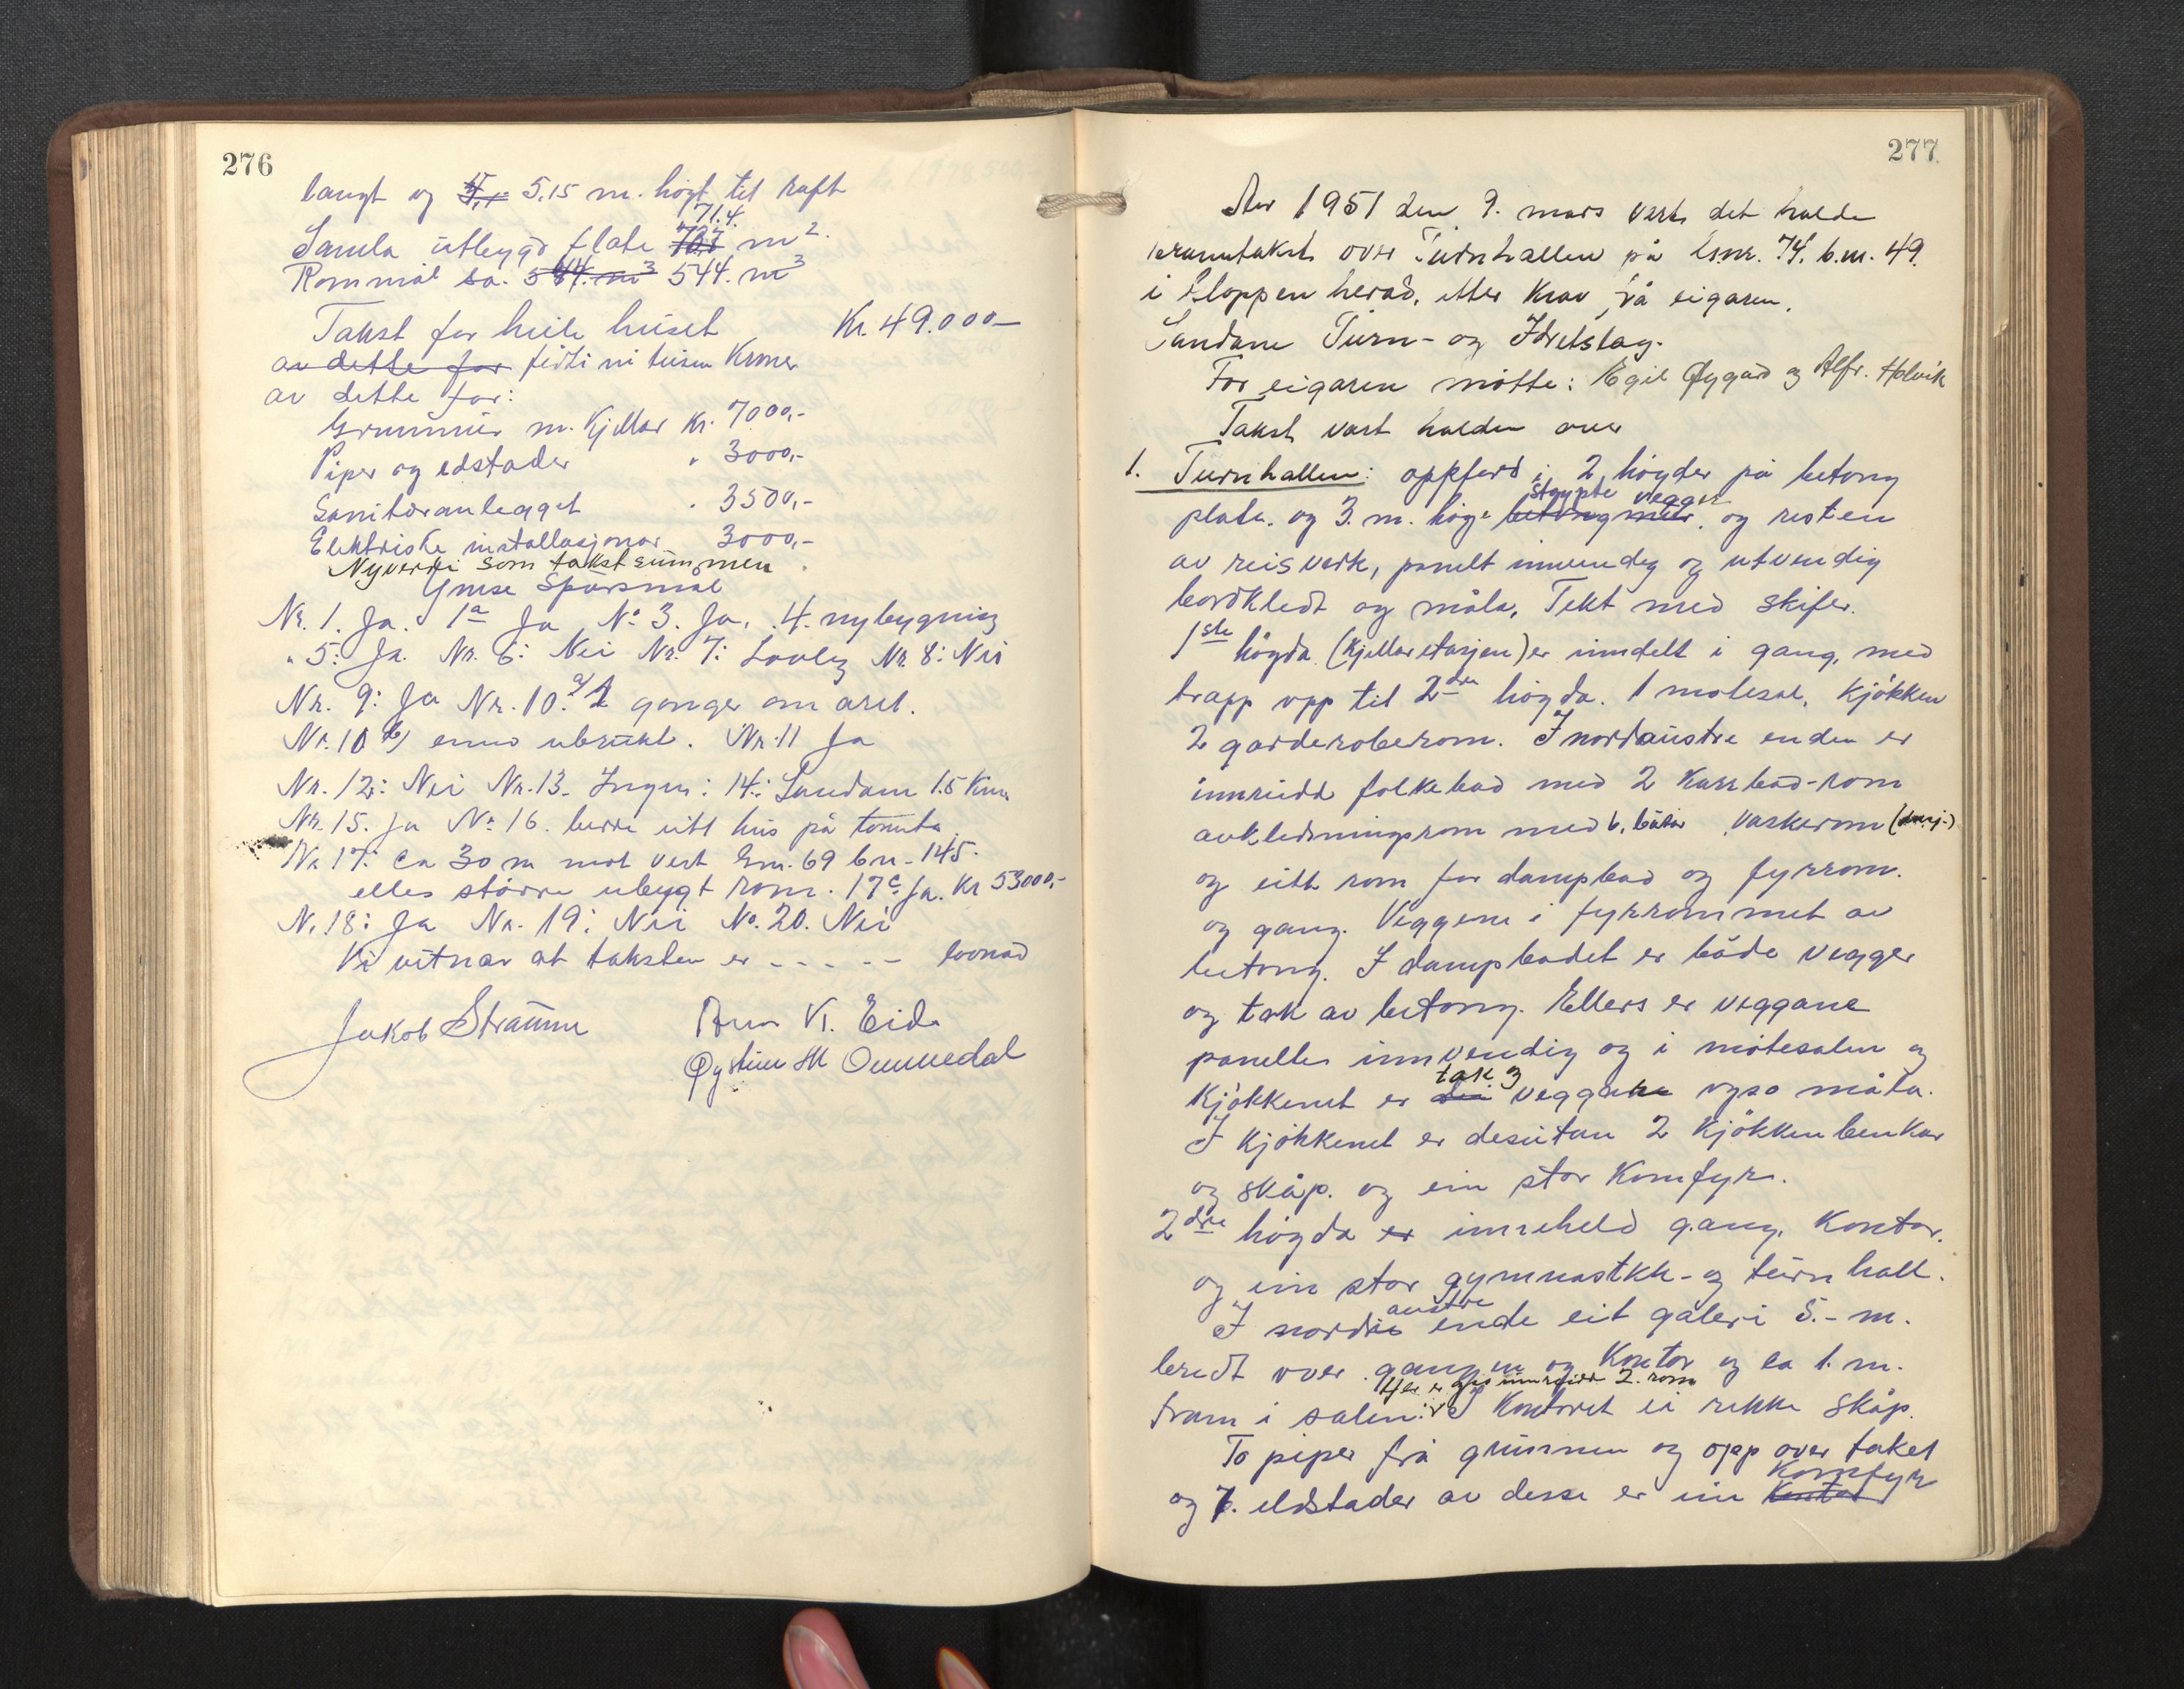 276
langt og 5,15 m. høgt til raft
71.4.
Samla utbygd flate m².
Rommål ca. 544. m³ 544. m³
Takst for heile huset Kr. 49.000—
av dette for førti ni tusen Kroner
av dette for:
Grunnmur m. Kjellar Kr. 7000,-
Piper og eldstader " 3000,-
Sanitæranlegget " 3500,-
Elektriske installasjonar 3000,-
Nyverdi som takstsummen
Ymse Spørsmål
Nr. 1. Ja. 1a Ja No 3. Ja. 4. nybygning
" 5: Ja. Nr. 6: Nei Nr. 7: Lovleg Nr. 8: Nei
Nr. 9: Ja Nr. 10. a/ 2 gonger om året.
Nr. 10 b) enno ubrukt. Nr. 11 Ja
Nr. 12: Nei Nr. 13. Ingen: 14: Sandane 1.5 Km
Nr. 15. Ja No 16. berre eitt hus på tomta
Nr 17: Ca 30 m mot vest Gnr. 69 bn. 145.
elles større ubygt rom. 17c Ja. Kr 53000,-
Nr. 18: Ja Nr. 19: Nei No. 20. Nei
Vi vitnar at taksten er - - - - - lovnad
Jakob Straume K. Eide
Øystein M Ommedal
277
Aar 1951 den 9. mars vart det halde
branntakst over Turnhallen på Gnr. 74. b.nr. 49.
i Gloppen herad, etter Krav frå eigaren.
Sandane Turn- og Idrettslag.
For eigaren møtte: Egil Øygard og Alfr. Holvik
Takst vart halden over
1. Turnhallen: oppførd i 2 høgder på betong
støypte vegger
plate. og 3. m. høge betong mur. og resten
av reisverk, panelt innvendig og utvendig
bordkledt og måla, Tekt med skifer.
1ste høgda (Kjellaretasjen) er inndelt i gang, med
trapp opp til 2dre høgda. 1 møtesal, Kjøkken
2 garderoberom. I nordaustre enden er
innreidd folkebad med 2 Karbad-rom
avkledningsrom med 6. båsar vaskerom (dusj-)
og eitt rom for dampbad og fyrrom.
og gang. Veggene i fyrrommet av
betong. I dampbadet er både vegger
og tak av betong. Ellers er veggane
panelte innvendig og i møtesalen og
tak og
Kjøkkenet er veggane også måla.
I Kjøkkenet er desutan 2 Kjøkkenbenkar
og skåp. og ein stor Komfyr.
2dre høgda er inneheld gang, Kontor.
og ein stor gymnastikk- og turnhall.
austre
I nordre ende eit galeri 5.- m.
bredt over gangen og Kontor og ca 1. m.
Her er og innreidd 2. rom
fram i salen. I Kontoret ei rekke skåp.
To piper frå grunnen og opp over taket
Komfyr
og 7. eldstader av desse er ein Kontor